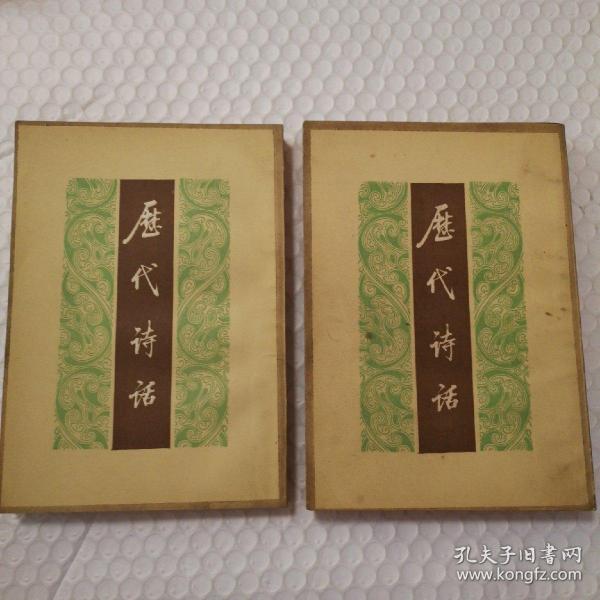 歷代诗话
歷代诗话
孔夫子旧书网
www.kongfz.com